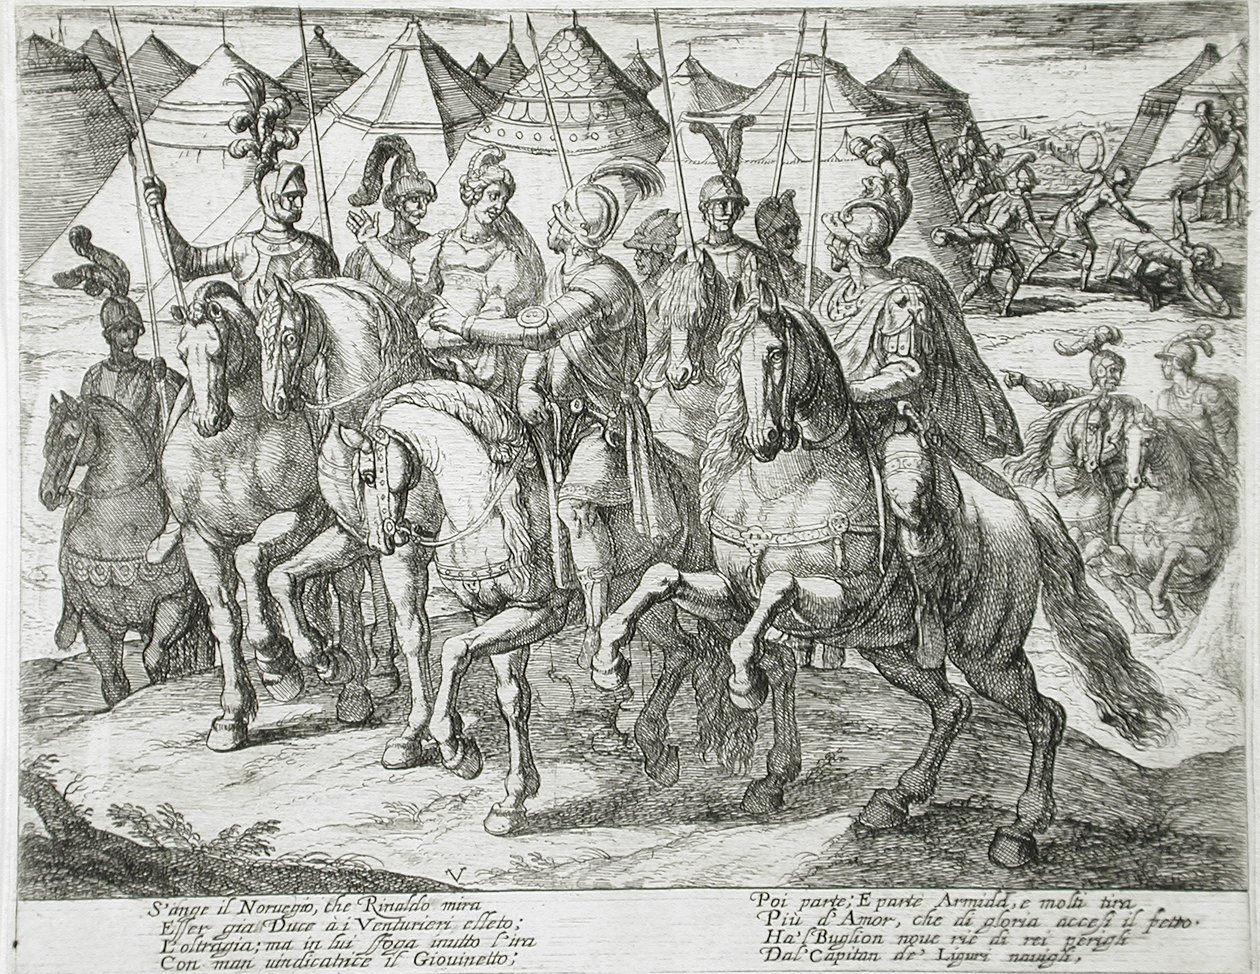 V
S'ange il Noruegio, che Rinaldo mira
Esser gia Duce a i Venturieri eletto;
L'oltragia; ma in lui sfoga inutto l'ira
Con man uindicatrice il Giouinetto;
Poi parte; E parte Armida, e molti tira
Più d'Amor, che di gloria accesi il petto.
Ha'l Buglion noue rie di rei perigli
Dal Capitan de' Liguri nauigli;